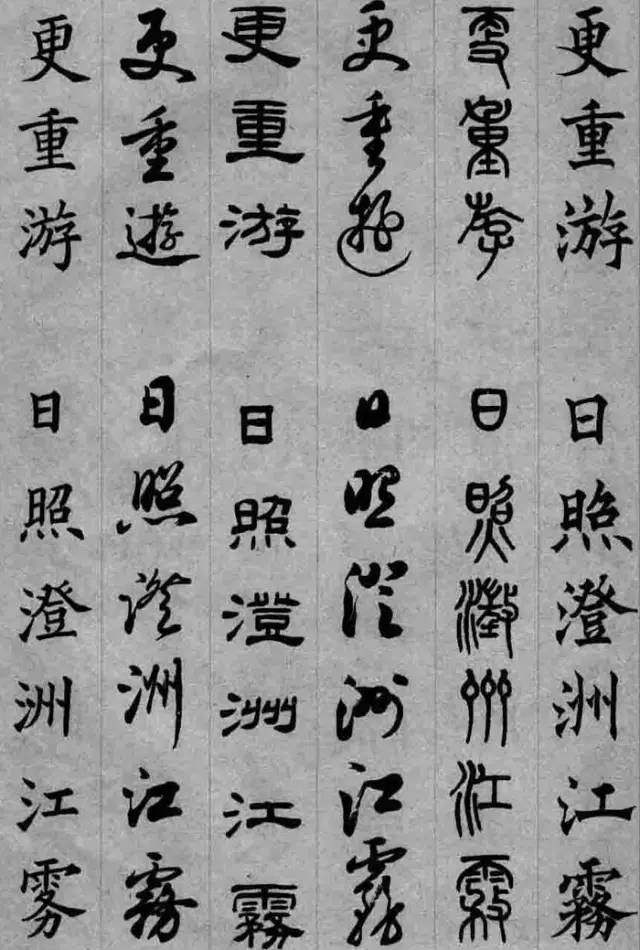 更重游 日照澄洲江霧
更重斿 日照澂州江霧
更重遊 日照澄洲江霧
更重游 日照澄洲江霧
更重遊 日照澄洲江霧
更重游 日照澄洲江雾